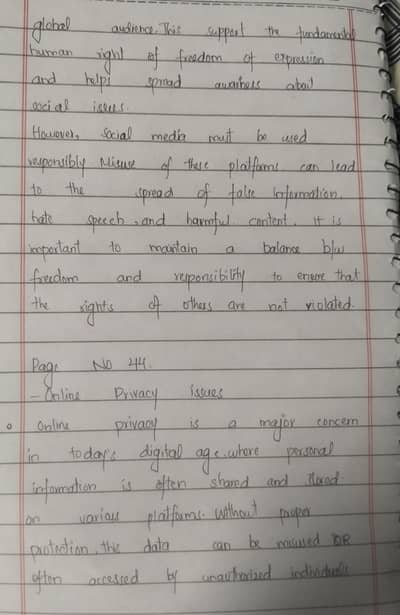 global audience. This support the fundamental
human right of freedom of expression
and helps spread awarness about
social issues.
However, social media must be used
responsibly Misuse of these platforms can lead
to the spread of false information,
hate speech, and harmful content. It is
important to maintain a balance b/w
freedom and responsibility to ensure that
the rights of others are not violated.
Page No 244.
- Online Privacy issues
Online privacy is a major concern
in today's digital age, where personal
information is often shared and stored
on various platforms. Without proper
protection, this data can be misused OR
often accessed by unauthorized individuals